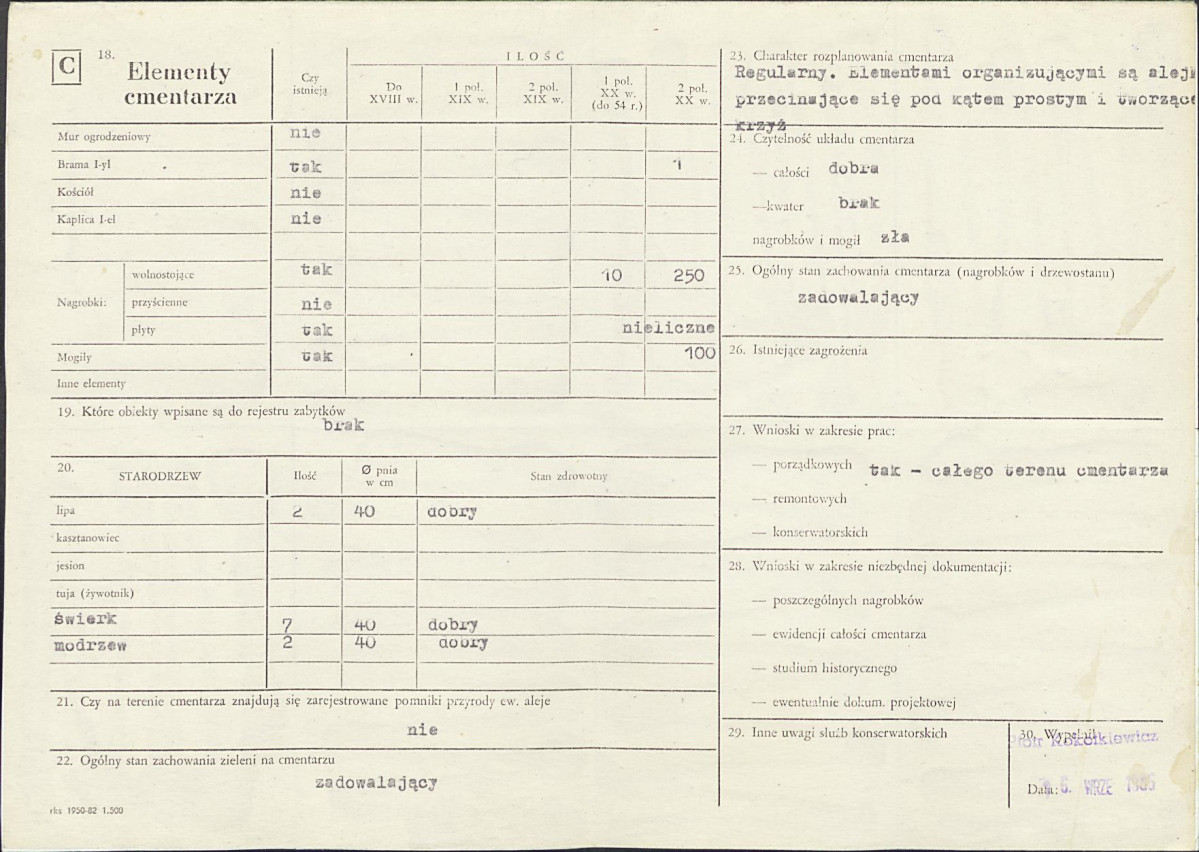 C
18.
Elementy
cmentarza
Czy
istnieją
ILOŚĆ
Do
XVIII w.
1 poł.
XIX w.
2 poł.
XIX w.
1 poł.
XX w.
(do 54 r.)
2 poł.
XX w.
Mur ogrodzeniowy nie
Brama I-yl tak 1
Kościół nie
Kaplica I-el nie
Nagrobki:
wolnostojące tak 10 250
przyścienne nie
płyty tak nieliczne
Mogiły tak 100
Inne elementy
19. Które obiekty wpisane są do rejestru zabytków
brak
20.
STARODRZEW Ilość Ø pnia
w cm
Stan zdrowotny
lipa 2 40 dobry
kasztanowiec
jesion
tuja (żywotnik)
świerk 7 40 dobry
modrzew 2 40 dobry
21. Czy na terenie cmentarza znajdują się zarejestrowane pomniki przyrody ew. aleje
nie
22. Ogólny stan zachowania zieleni na cmentarzu
zadowalający
rks 1950-82 1.500
23. Charakter rozplanowania cmentarza
Regularny. Elementami organizującymi są alej
przecinające się pod kątem prostym i tworzące
krzyż
24. Czytelność układu cmentarza
— całości dobra
—kwater brak
nagrobków i mogił zła
25. Ogólny stan zachowania cmentarza (nagrobków i drzewostanu)
zadowalający
26. Istniejące zagrożenia
27. Wnioski w zakresie prac:
— porządkowych tak - całego terenu cmentarza
— remontowych
— konserwatorskich
28. Wnioski w zakresie niezbędnej dokumentacji:
— poszczególnych nagrobków
— ewidencji całości cmentarza
— studium historycznego
— ewentualnie dokum. projektowej
29. Inne uwagi służb konserwatorskich
30. Wypełnił
Piotr
Data: WRZE